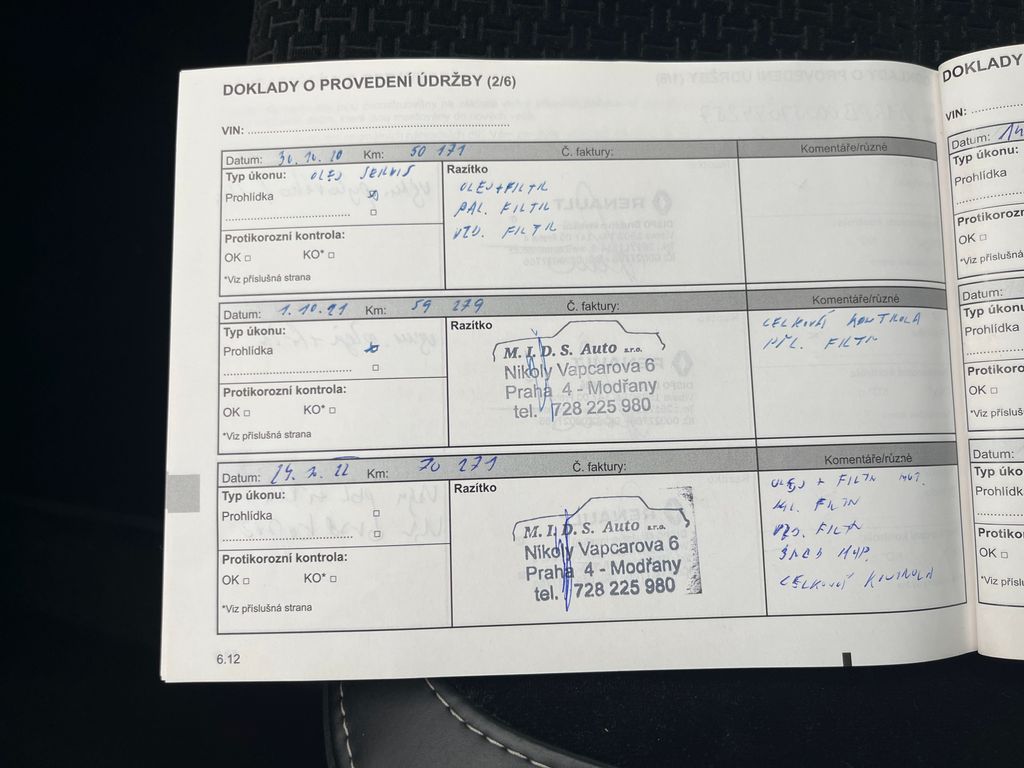 DOKLADY O PROVEDENÍ ÚDRŽBY (2/6)
VIN:
Datum: 30.10.20 Km: 50 171 Č. faktury: Komentáře/různé
Typ úkonu: OLEJ SERVIS
Prohlídka
Protikorozní kontrola:
OK □ KO* □
*Viz příslušná strana
Razítko
OLEJ+FILTR
PAL. FILTR
VZD. FILTR
Datum: 1.10.21 Km: 59 279 Č. faktury: Komentáře/různé
Typ úkonu:
Prohlídka
□
Protikorozní kontrola:
OK □ KO* □
*Viz příslušná strana
Razítko
M. I. D. S. Auto s.r.o.
Nikoly Vapcarova 6
Praha 4 - Modřany
tel. 728 225 980
CELKOVÁ KONTROLA
FILTR
Datum: 24. 2. 22 Km: 70 271 Č. faktury: Komentáře/různé
Typ úkonu:
Prohlídka □
□
Protikorozní kontrola:
OK □ KO* □
*Viz příslušná strana
Razítko
M. I. D. S. Auto s.r.o.
Nikoly Vapcarova 6
Praha 4 - Modřany
tel. 728 225 980
OLEJ + FILTR MOT.
FILTR
VZD. FILTR
CELKOVÁ KONTROLA
6.12
DOKLADY
VIN:
Datum: 14
Typ úkonu:
Prohlídka
Protikorozn
OK □
*Viz příslušná
Datum:
Typ úkonu:
Prohlídka
Protikoro
OK □
*Viz přísluš
Datum:
Typ úko
Prohlídk
Protiko
OK □
*Viz přísl